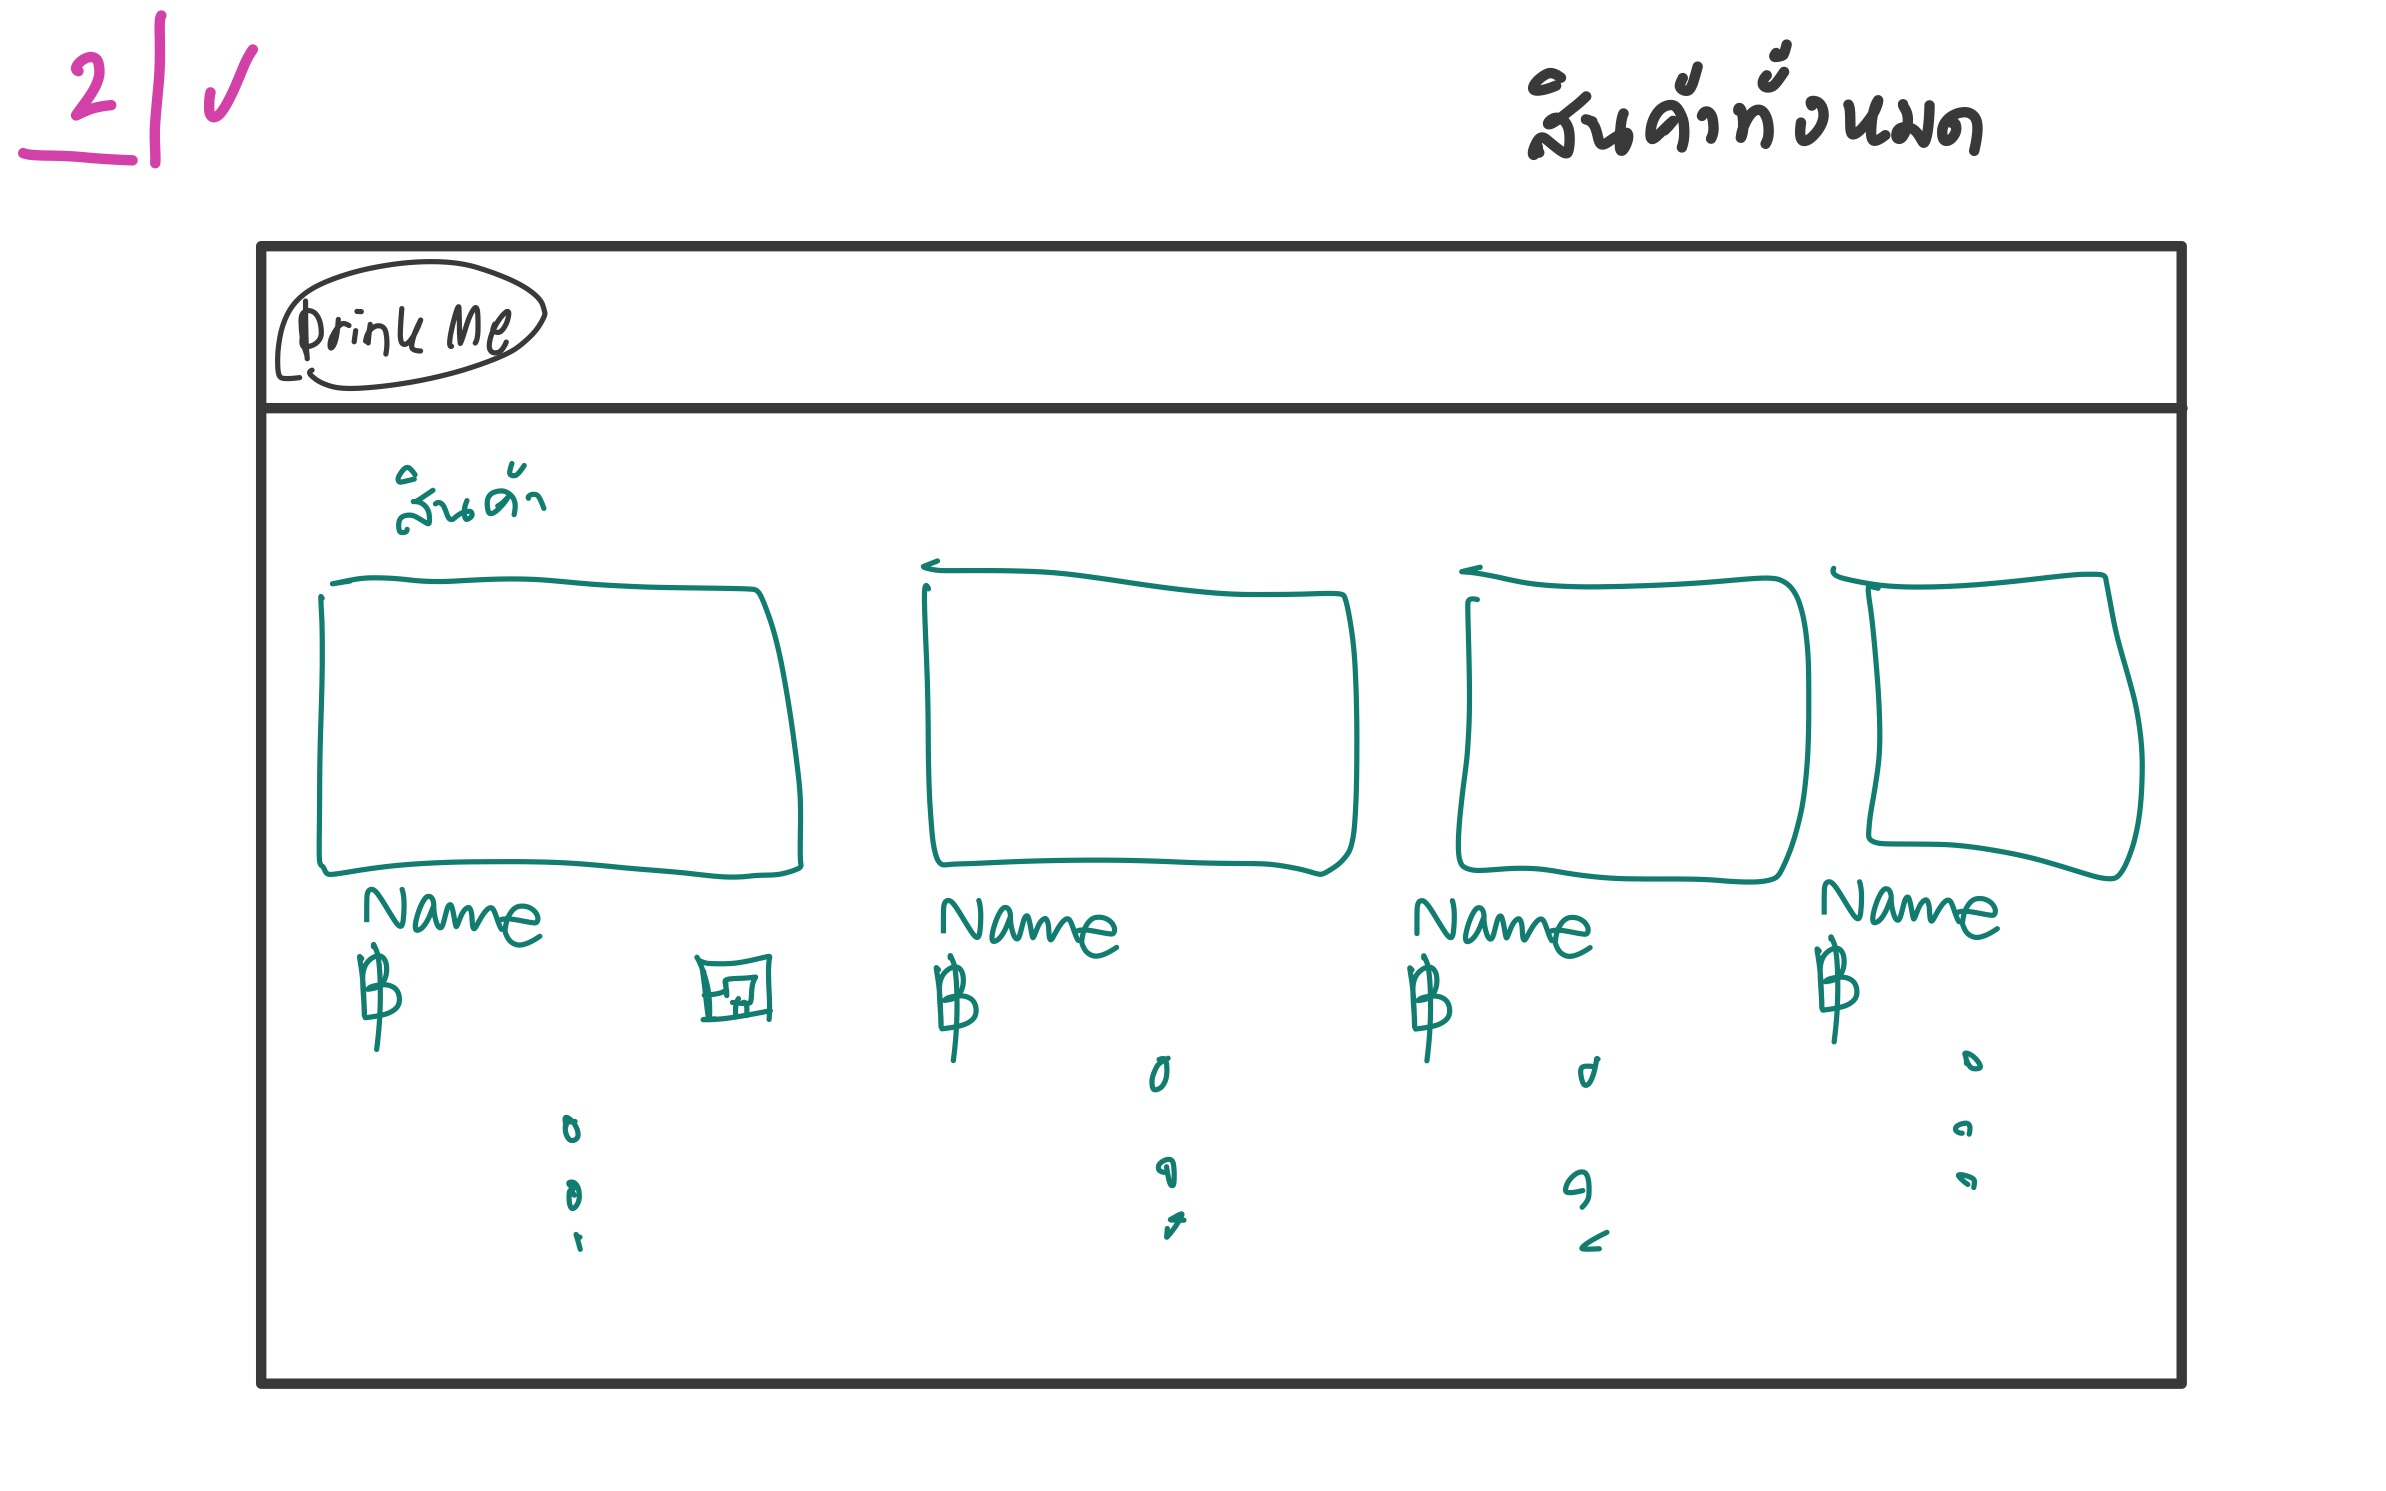 2
สินค้าทั้งหมด
Drink Me
สินค้า
Name Name Name Name
฿ ฿ ฿ ฿